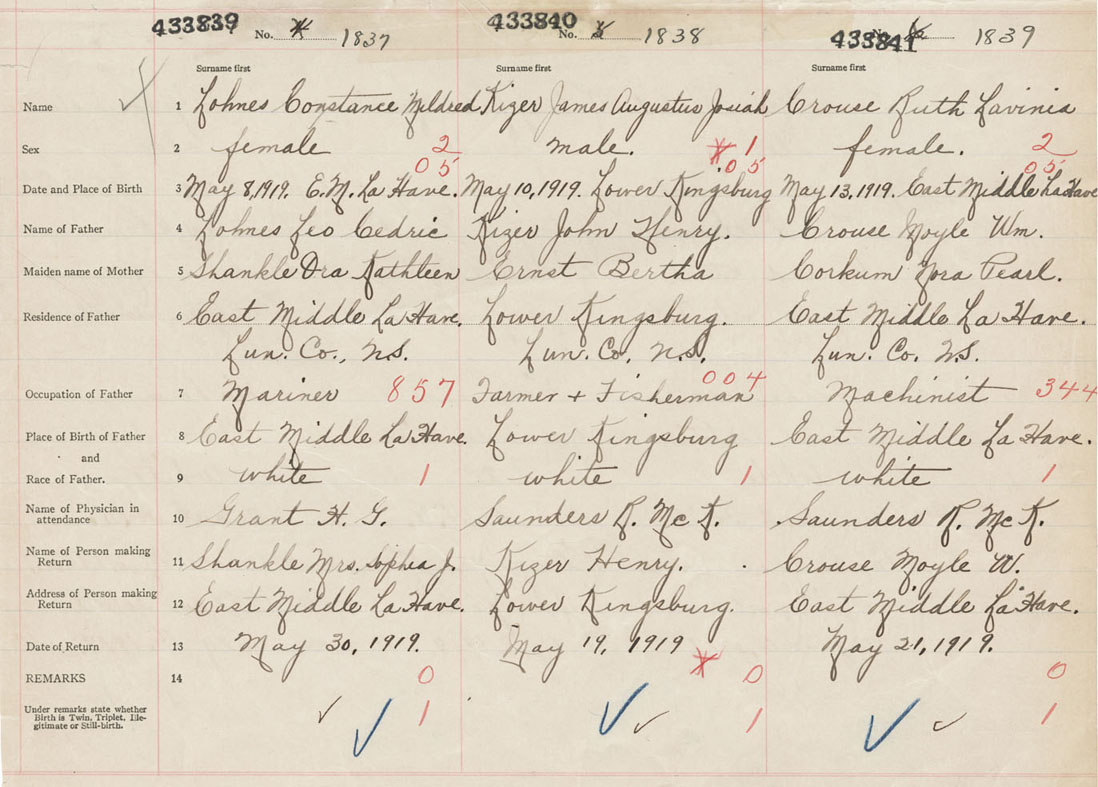 433839 No. 1837 433840 No. 1838 433841 1839
Surname first Surname first Surname first
Name 1 Lohnes Constance Mildred Kizer James Augustus Josiah Crouse Ruth Lavinia
Sex 2 female 2 male. 1 female. 2
05 05 05
Date and Place of Birth 3 May 8, 1919. E.M. La Have. May 10, 1919. Lower Kingsburg May 13, 1919. East Middle La Have
Name of Father 4 Lohnes Leo Cedric Kizer John Henry. Crouse Moyle Wm.
Maiden name of Mother 5 Shankle Ora Kathleen Ernst Bertha Corkum Nora Pearl.
Residence of Father 6 East Middle La Have. Lower Kingsburg. East Middle La Have.
Lun. Co., N.S. Lun. Co, N.S. Lun. Co. N.S.
Occupation of Father 7 Mariner 857 Farmer + Fisherman 004 Machinist 344
Place of Birth of Father 8 East Middle La Have. Lower Kingsburg East Middle La Have.
and
Race of Father. 9 white 1 white 1 white 1
Name of Physician in
attendance 10 Grant H. G. Saunders R. Mc K. Saunders R. Mc K.
Name of Person making
Return 11 Shankle Mrs. Sophia J. Kizer Henry. Crouse Moyle W.
Address of Person making
Return 12 East Middle La Have. Lower Kingsburg. East Middle La Have.
Date of Return 13 May 30, 1919. May 19, 1919 May 21, 1919.
REMARKS 14 0 0 0
Under remarks state whether
Birth is Twin, Triplet, Ille-
gitimate or Still-birth. 1 1 1